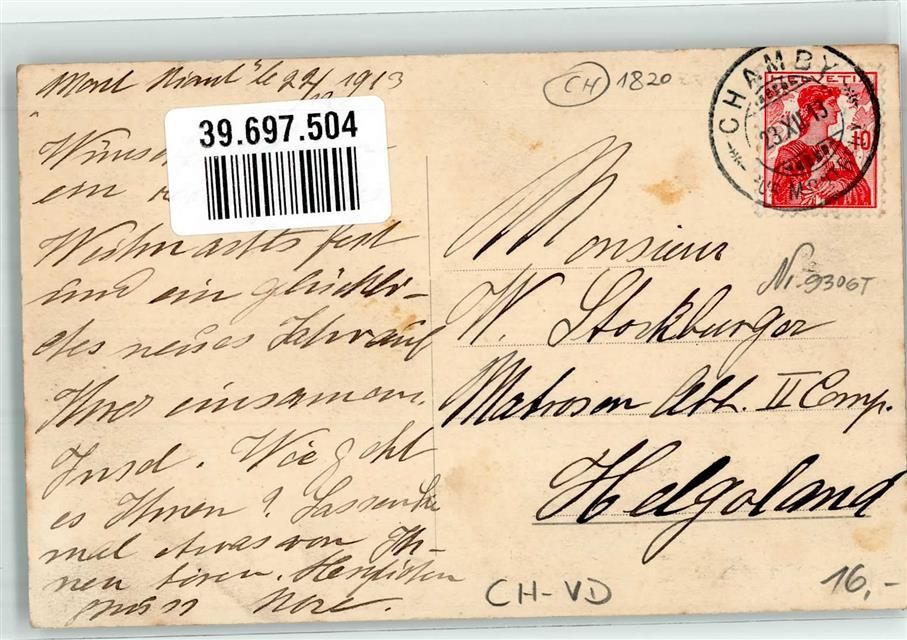 le 22/12 1913
39.697.504
ein
Weihnachtsfest
und ein glückli-
ches neues Jahr auf
Ihrer einsamen
Insel. Wie geht
es Ihnen? Lassen Sie
mal etwas von Ih-
nen hören. Herzlichen
gruss
CH 1820
CHAMBY
23.XII.13
HELVETIA
10
Monsieur
W. Stockburger
Nr. 9306T
Matrosen Abt. II Comp.
Helgoland
CH-VD
16,-